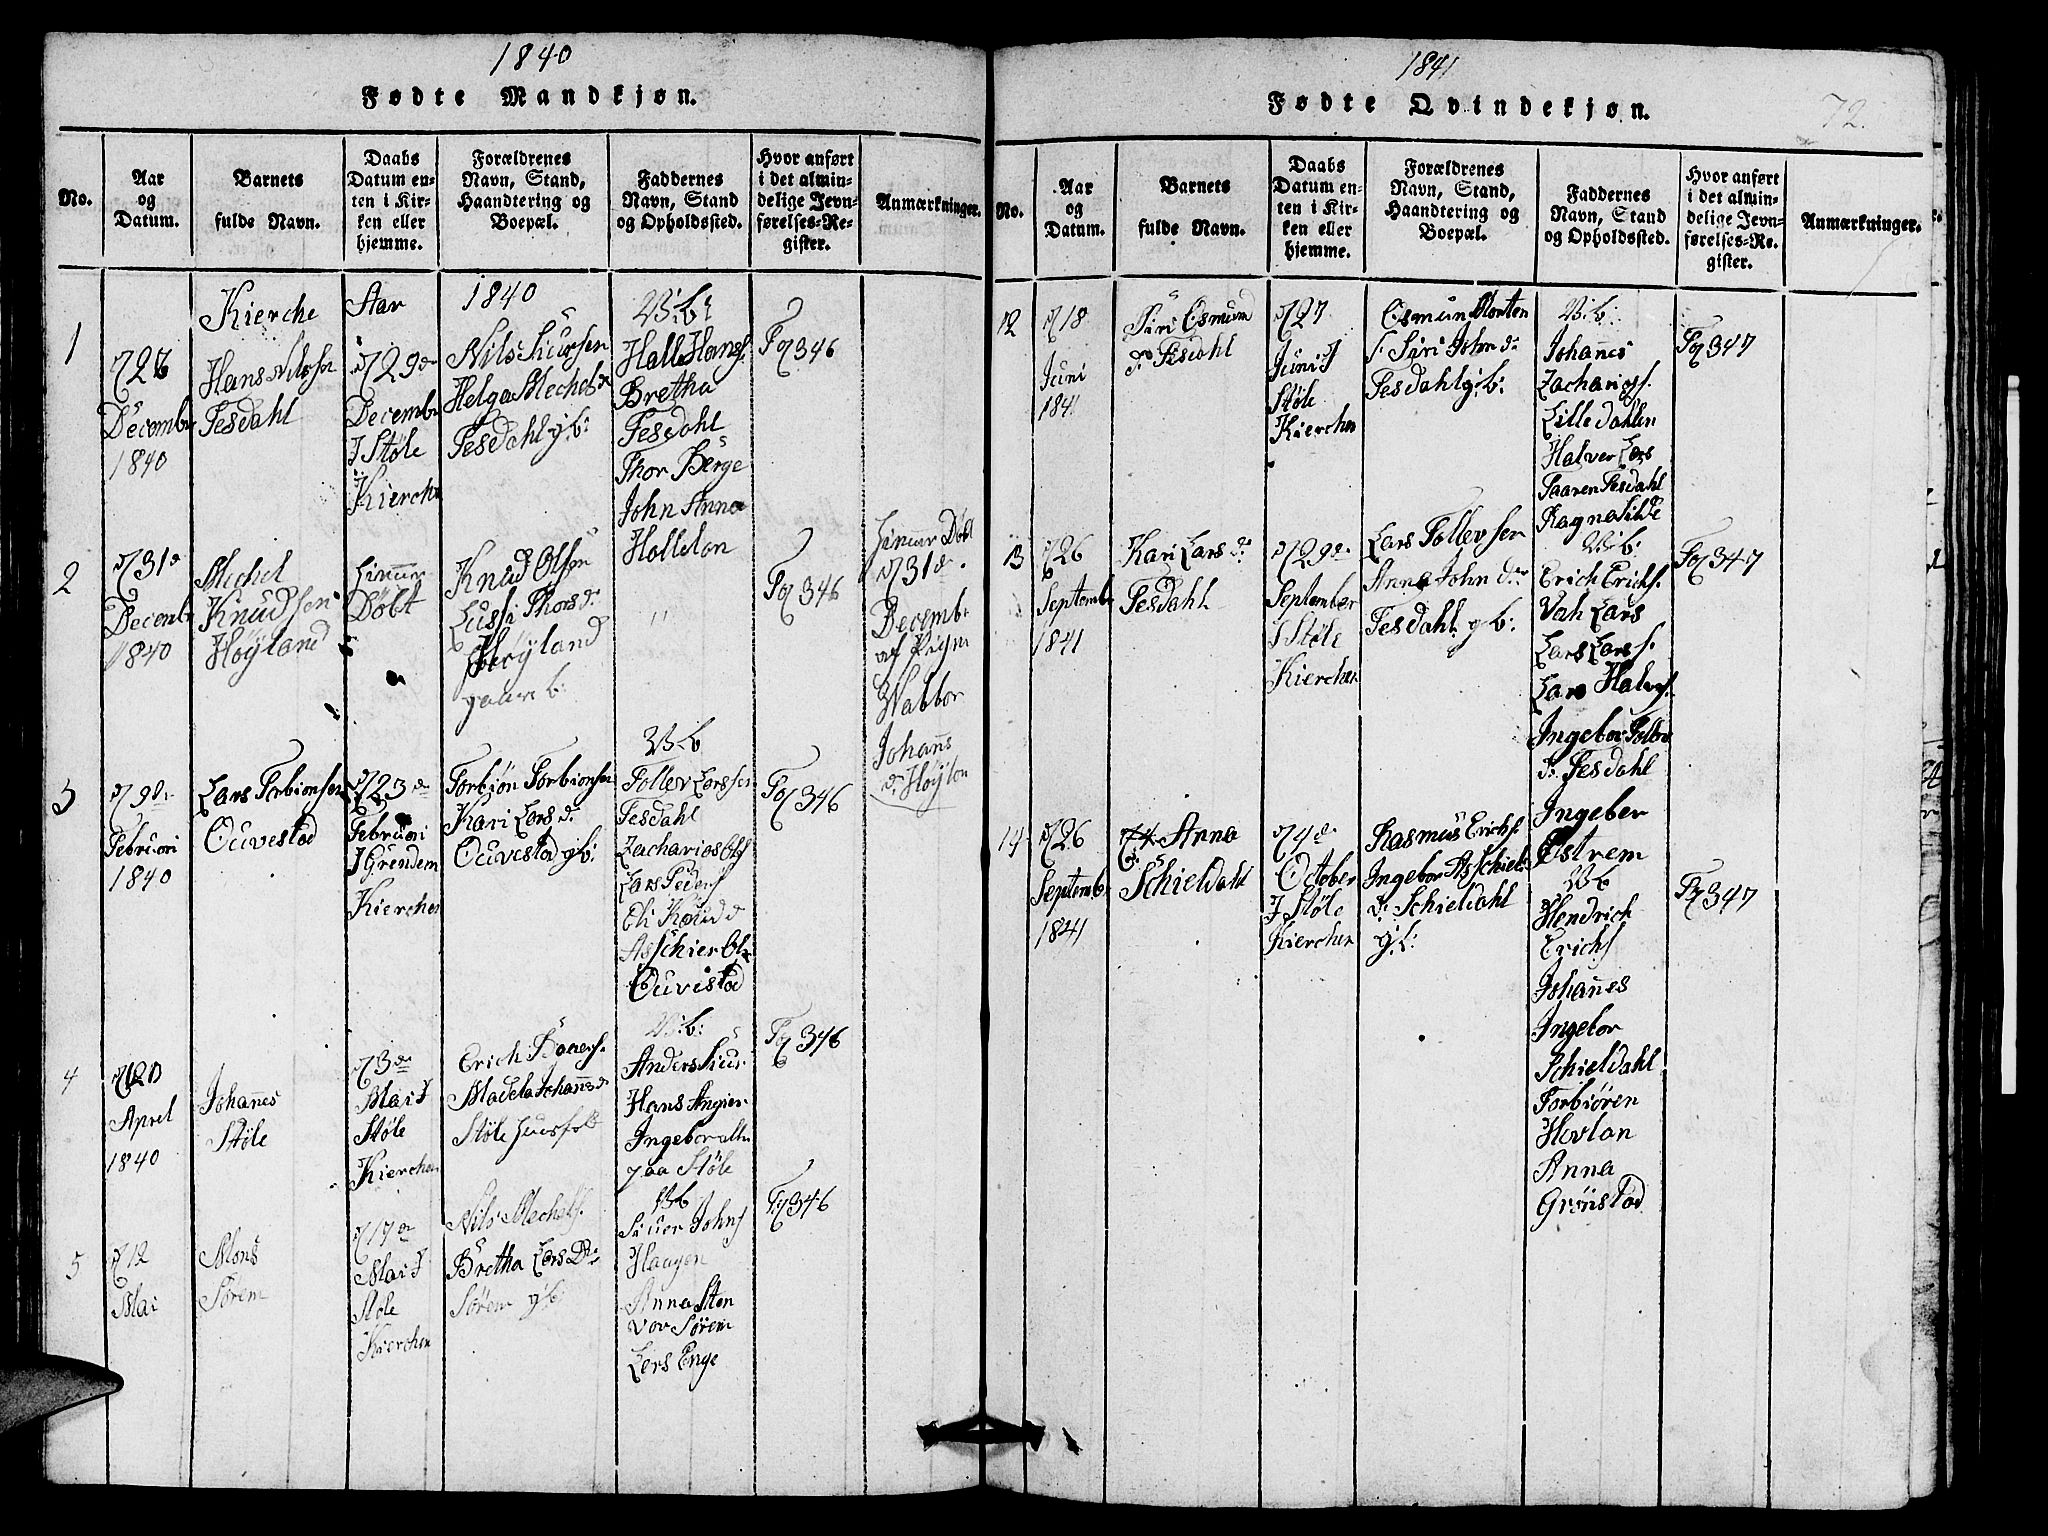 1840
Fødte Mandkjøn.
No.
Aar
og
Datum.
Barnets
fulde Navn.
Daabs
Datum en-
ten i Kir-
ken eller
hjemme.
Forældrenes
Navn, Stand,
Haandtering og
Boepæl.
Faddernes
Navn, Stand
og Opholdssted.
Hvor anført
i det almin-
delige Jevn-
førelses-Re-
gister.
Anmærkninger.
Kierche Aar 1840
1
27
Decembr
1840
Hans Nilssen
Tesdahl
29de
Decembr
I Støle
Kierche
Nils Siursen
Helga Mechels d
Tesdahl g: b:
V: b:
Halle Hans
Bretha
Tesdahl
Thor Berge
John Anna
Holleton
Fol 346
2
31d
Decembr
1840
Mechel
Knudsen
Høyland
Døbt
Knud Olsen
Lussi Thors d
Høyland
b:
"
Fol 346
Døbt
31de
Decembr
af Pigen
Wabbor
Johans
d: Høylon
3
9de
Februari
1840
Lars Torbionsen
Ouvestad
23de
Februari
I Grendem
Kierchen
Torbiøn Torbionsen
Kari Lars d:
Ouvestad g b:
V b
Tollev Larssen
Tesdahl
Zacharias Ols
Lars Peders
Eli Knud d
Asschier Ols
Ouvestad
Fol 346
4
20
Aprel
1840
Johanes
Støle
3de
Mai I
Støle
Kierchen
Erich Baars.
Madela Johans d
Støle Huusfol
V: b:
Anders Siur
Hans Angier
Ingebor alle
paa Støle
Fol 346
5
12
Mai
Mons
Sørem
17de
Mai I
Støle
Kierchen
Nils Mechels.
Bretha Lars D:
Sørem g b:
V b
Siuer Johns
Haagen
Anna Sten
vor Sørem
Lars Enge
Fol 346
1841
Fødte Qvindekjøn.
72.
No.
Aar
og
Datum.
Barnets
fulde Navn.
Daabs
Datum en-
ten i Kir-
ken eller
hjemme.
Forældrenes
Navn, Stand,
Haandtering og
Boepæl.
Faddernes
Navn, Stand
og Opholdssted.
Hvor anført
i det almin-
delige Jevn-
førelses-Re-
gister.
Anmærkninger.
12
18
Juni
1841
Siri Osmund
d: Tesdahl
27
Juni I
Støle
Kierchen
Osmun Morten
s Siri John d:
Tesdahl g: b:
V: b:
Johanes
Zacharias.
Lille Dahlen
Halver Lars
Taaren Tesdahl
Ragnasilde
Fol 347
13
26
Septembr
1841
Kari Lars d:
Tesdahl
29de
September
I Støle
Kierchen
Lars Tollevsen
Anna John d:
Tesdahl g b:
V: b:
Erich Erichs.
Vah Lars
Lars Lars s.
Lars Halvs.
Ingebor Tolev
d: Tesdahl
Ingeber
Østrem
Fol 347
14
26
Septembr
1841
Anna
Schieldahl
4de
October
I Støle
Kierchen
Rasmus Erichs.
Ingebor Asschiel
d: Schieldahl
g: b:
V b
Hendrich
Erichs
Johanes
Ingebor
Schieldahl
Torbiøren
Hovlan
Anna
Grønstad
Fol 347